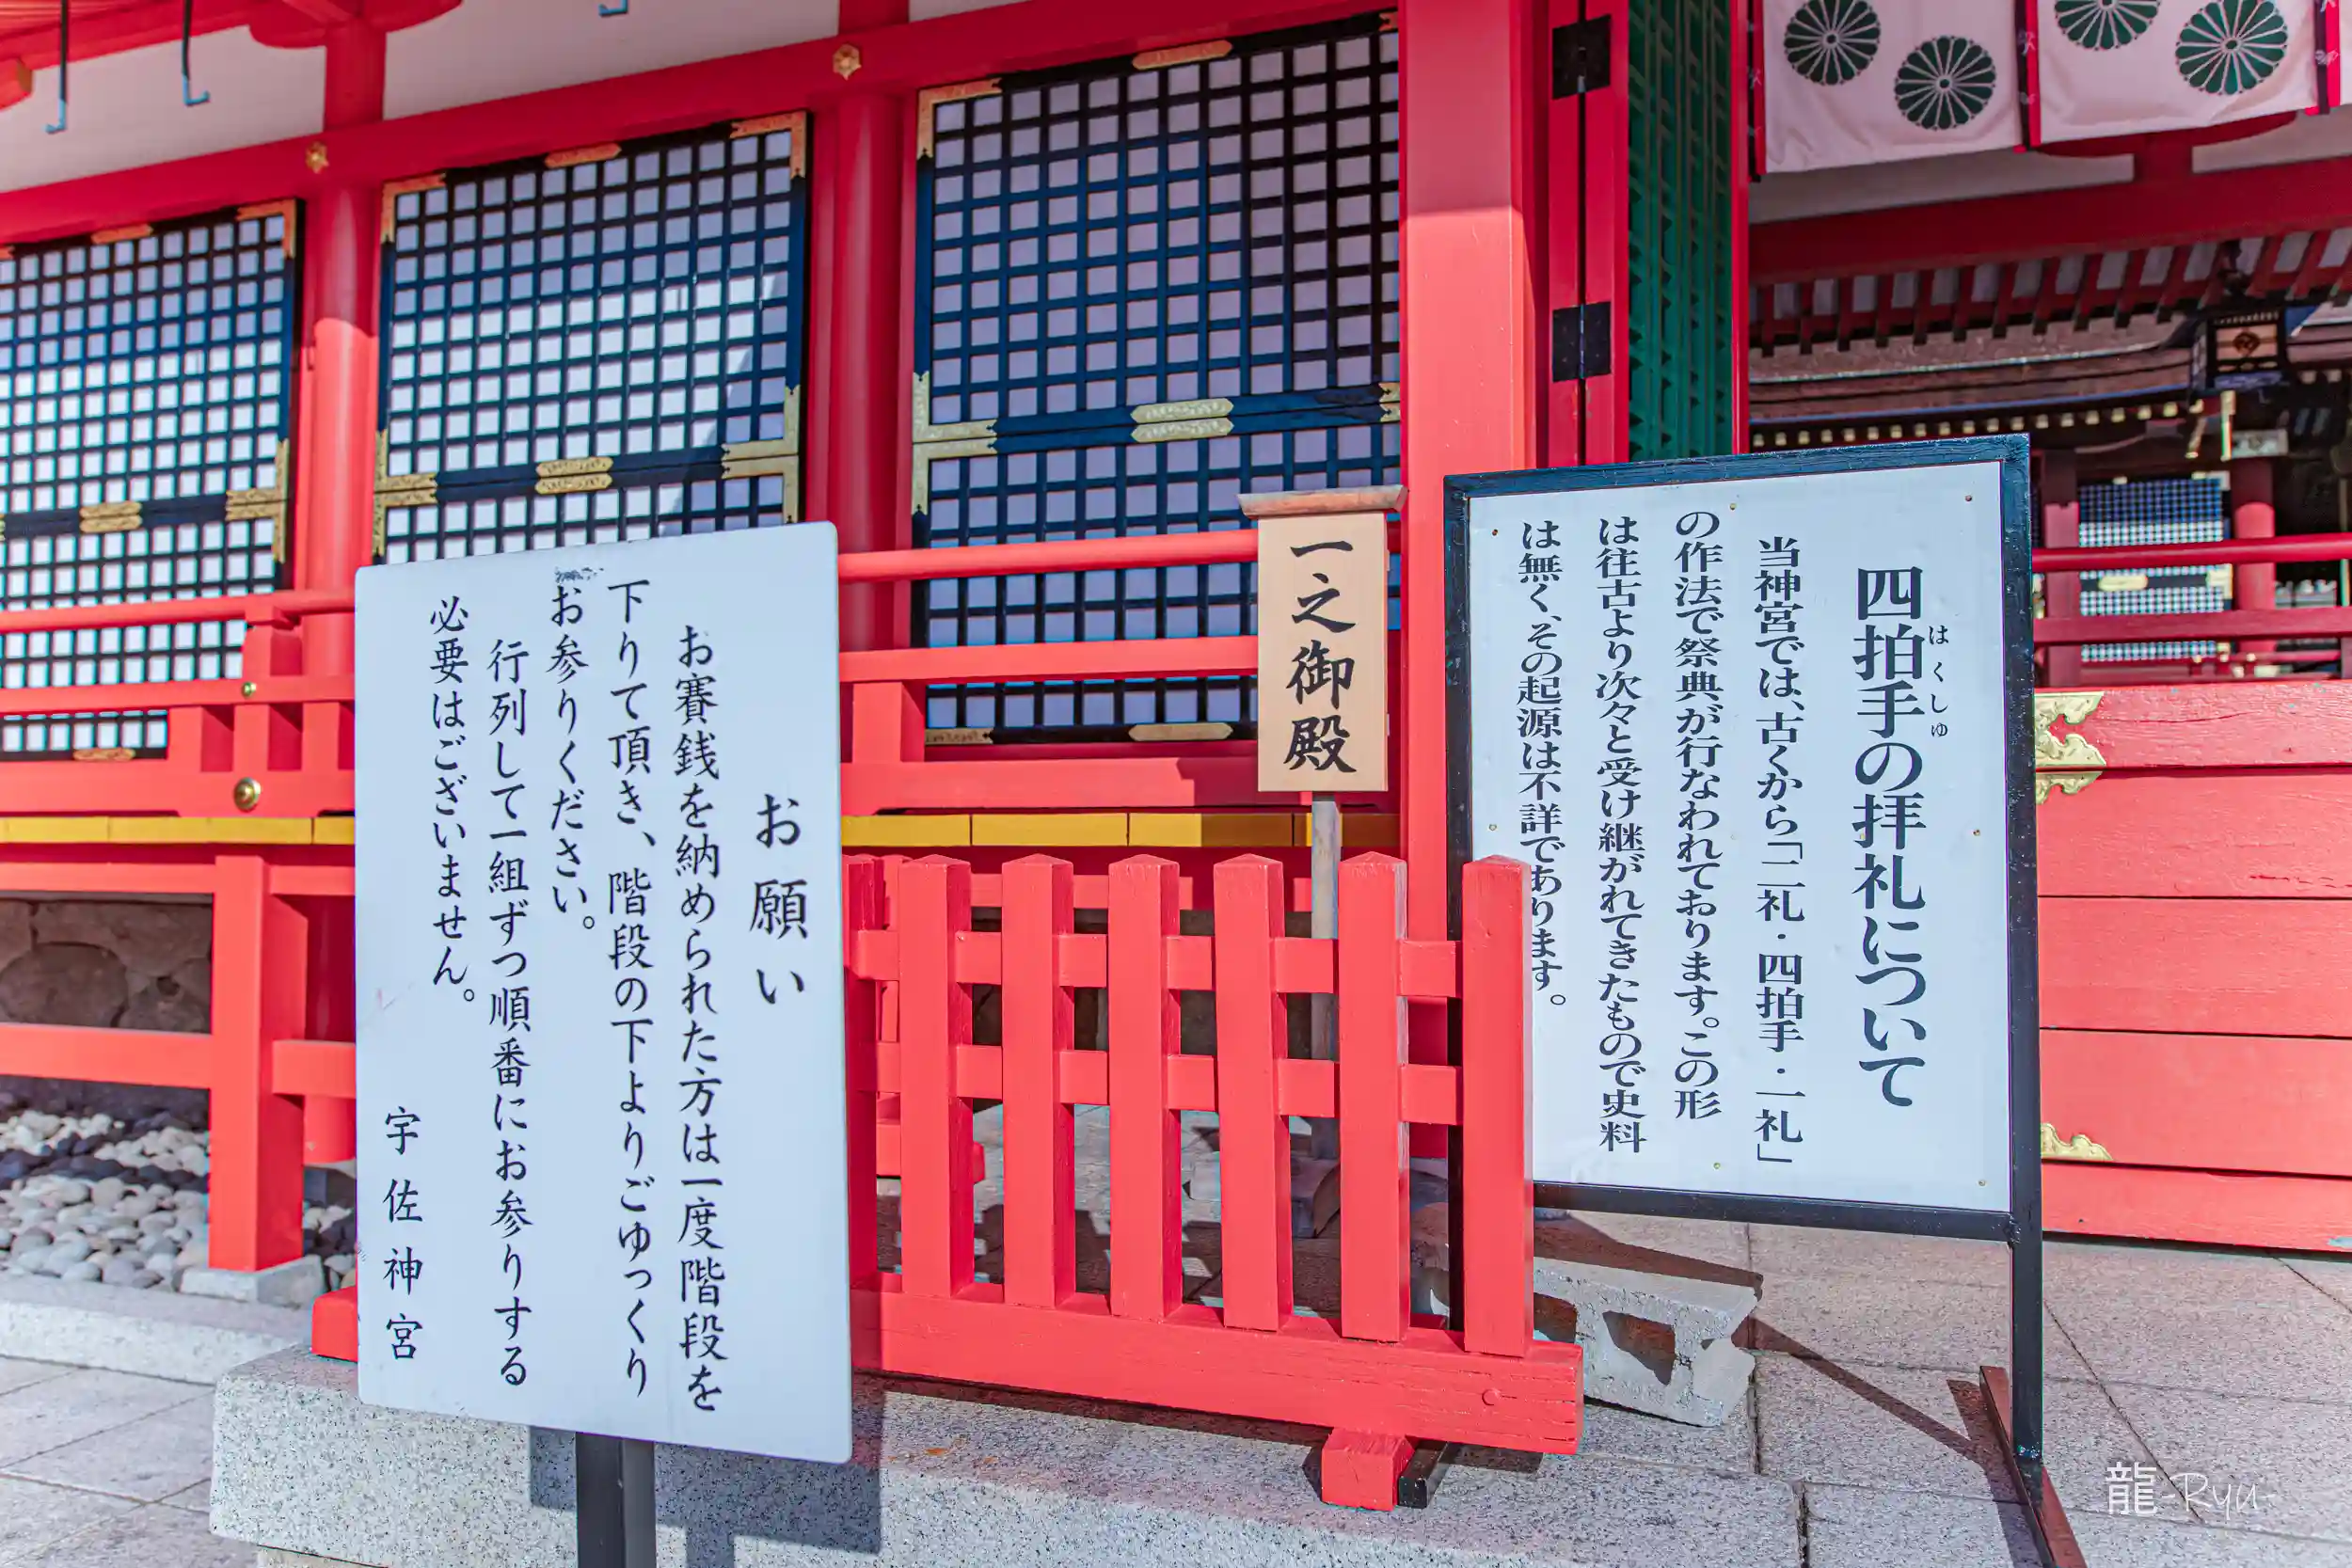 四拍手の拝礼について
はくしゅ
当神宮では、古くから「二礼・四拍手・一礼」
の作法で祭典が行なわれております。この形
は往古より次々と受け継がれてきたもので史料
は無く、その起源は不詳であります。
一之御殿
お願い
お賽銭を納められた方は一度階段を
下りて頂き、階段の下よりごゆっくり
お参りください。
行列して一組ずつ順番にお参りする
必要はございません。
宇佐神宮
龍-Ryu-